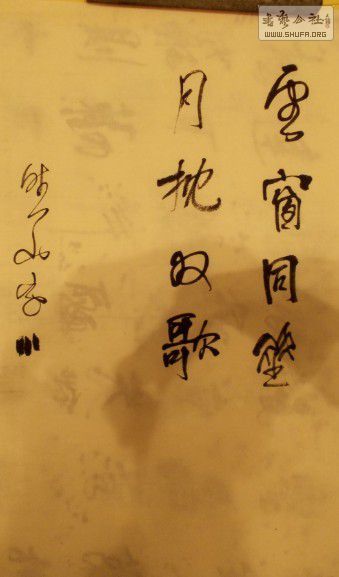 雲窗同坐
月枕双歌
書藝公社
WWW.SHUFA.ORG